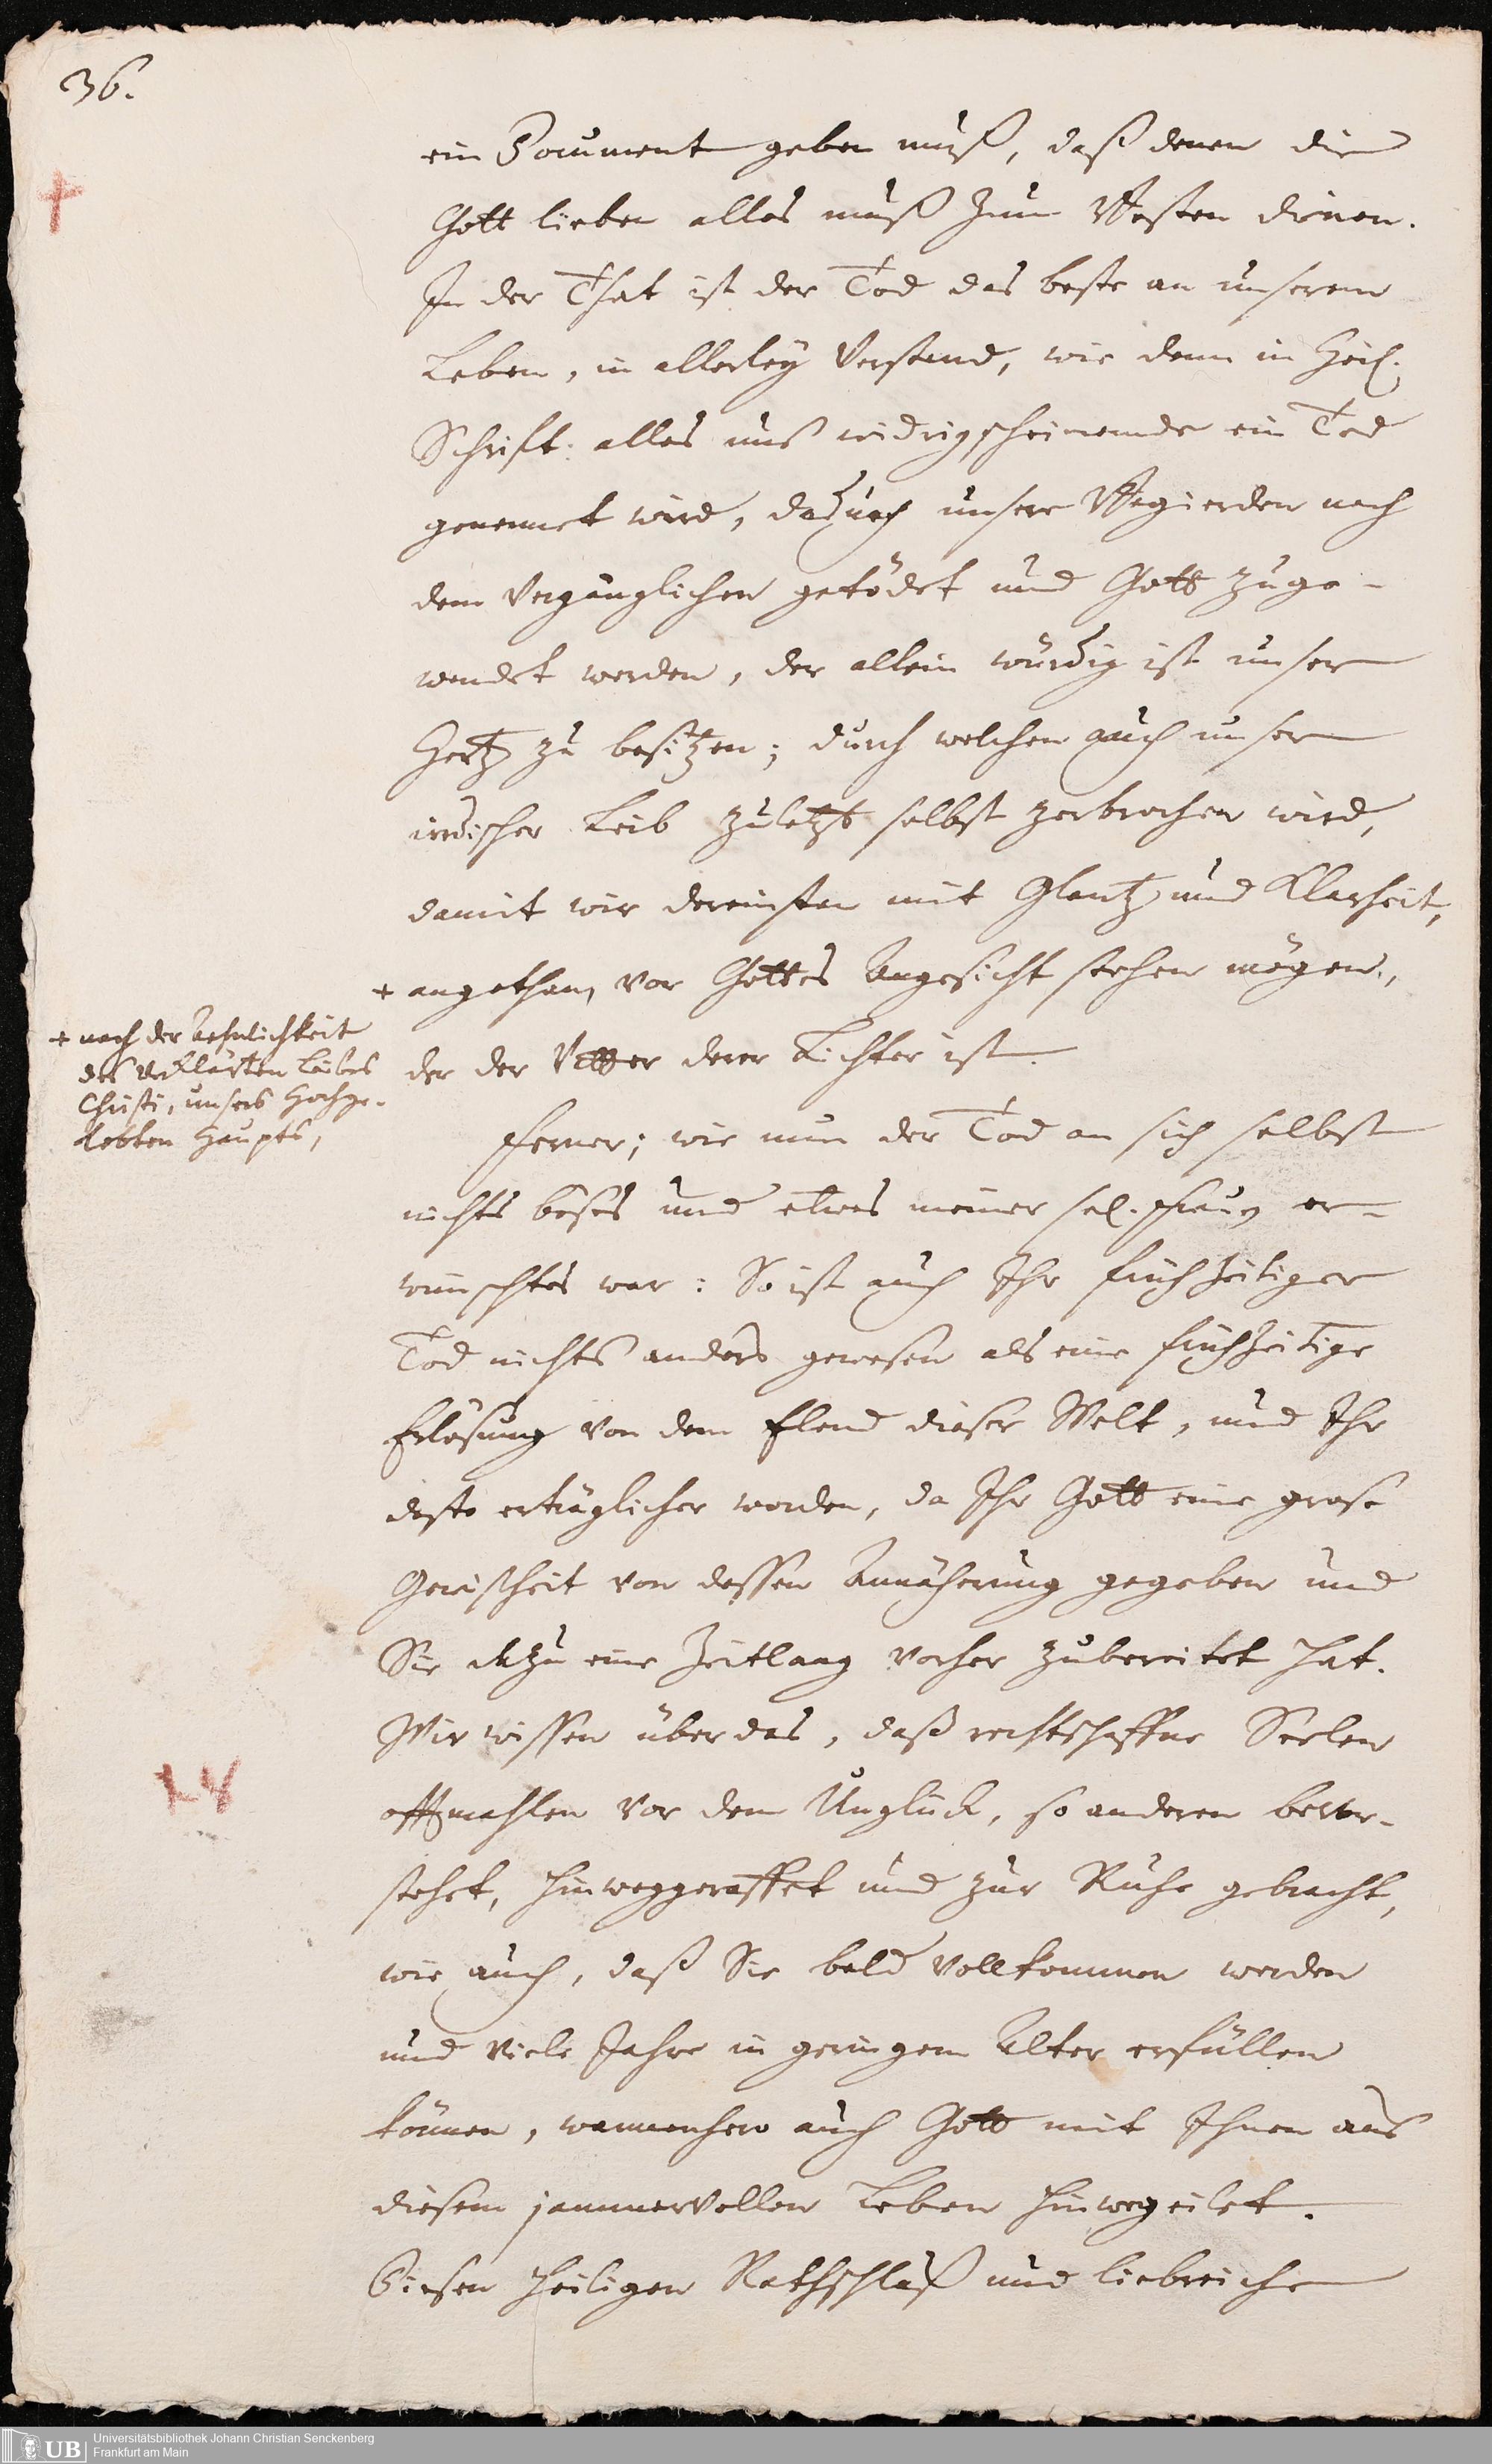 36.
ein Document geben muß, daß denen die
Gott lieben alles muß zum Besten dienen.
In der That ist der Tod das beste an unserem
Leben, in allerley Verstand, wie denn in Heil.
Schrifft alles uns widrigscheinende ein Tod
genennet wird, dadurch unsere Begierden nach
dem Vergänglichen getödet und Gott zuge-
wendet werden, der allein würdig ist unser
Hertz zu besitzen; durch welchen auch unser
irrdischer Leib zuletzt selbst zerbrochen wird,
damit wir dereinsten mit Glantz und Klarheit,
+ angethan, vor Gottes Angesicht stehen mögen,
+ nach der Aehnlichkeit
des verklärten Leibes
Christi, unsers Hochge-
liebten Haupts,
der der Vatter derer Lichter ist.
Ferner; wie nun der Tod an sich selbst
nichts böses und etwas meiner sel. Frau er-
wünschtes war: So ist auch Ihr frühzeitiger
Tod nichts anders gewesen als eine frühzeitige
Erlösung von dem Elend dieser Welt, und Ihr
desto erträglicher worden, da Ihr Gott eine grose
Gewisheit von dessen Annäherung gegeben und
Sie dazu eine Zeitlang vorher zubereitet hat.
Wir wissen über das, daß rechtschaffne Seelen
offtmahlen vor dem Unglück, so anderen bevor-
stehet, hinweggeraffet und zur Ruhe gebracht,
wie auch, daß Sie bald vollkommen werden
und viele Jahre in geringem Alter erfüllen
können, wannenhero auch Gott mit Ihnen aus
diesem jammervollen Leben hinweg eilet.
Diesen heiligen Rathschluß und liebreiche
UB Universitätsbibliothek Johann Christian Senckenberg
Frankfurt am Main